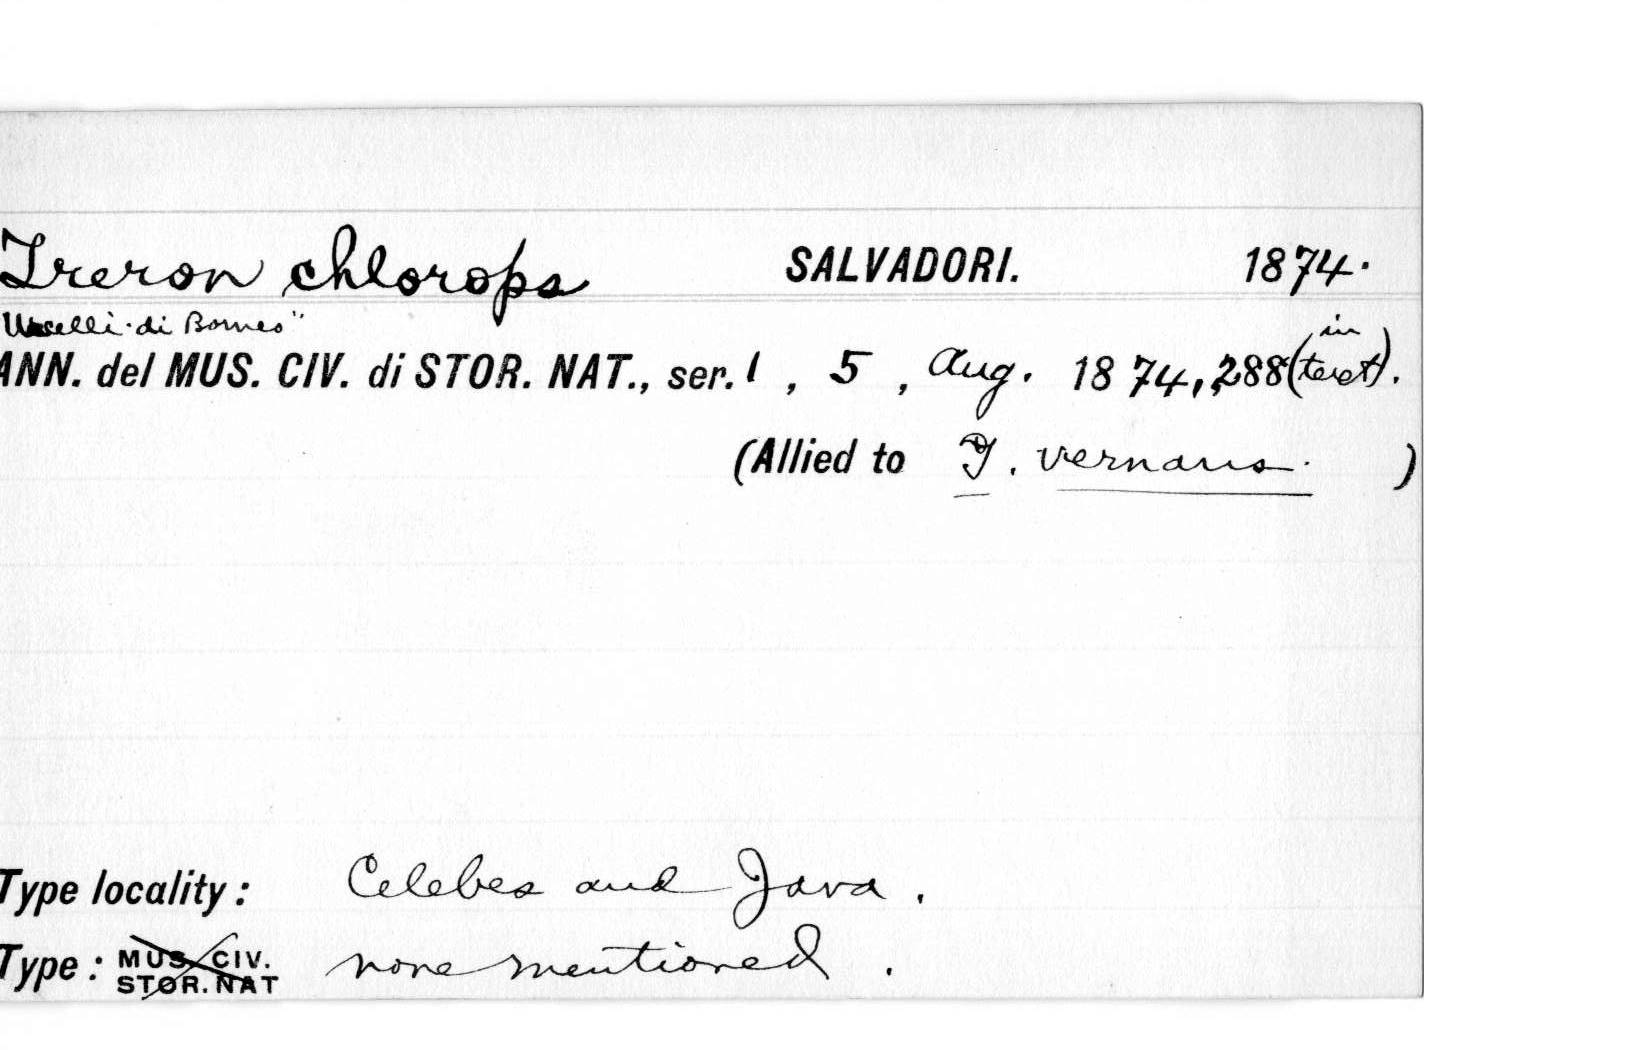 Treron chlorops SALVADORI. 1874.
Uccelli di Borneo"
ANN. del MUS. CIV. di STOR. NAT., ser. 1, 5, Aug. 1874, 288 (in text).
(Allied to T. vernans. )
Type locality: Celebes and Java.
Type: MUS. CIV. none mentioned.
STOR. NAT